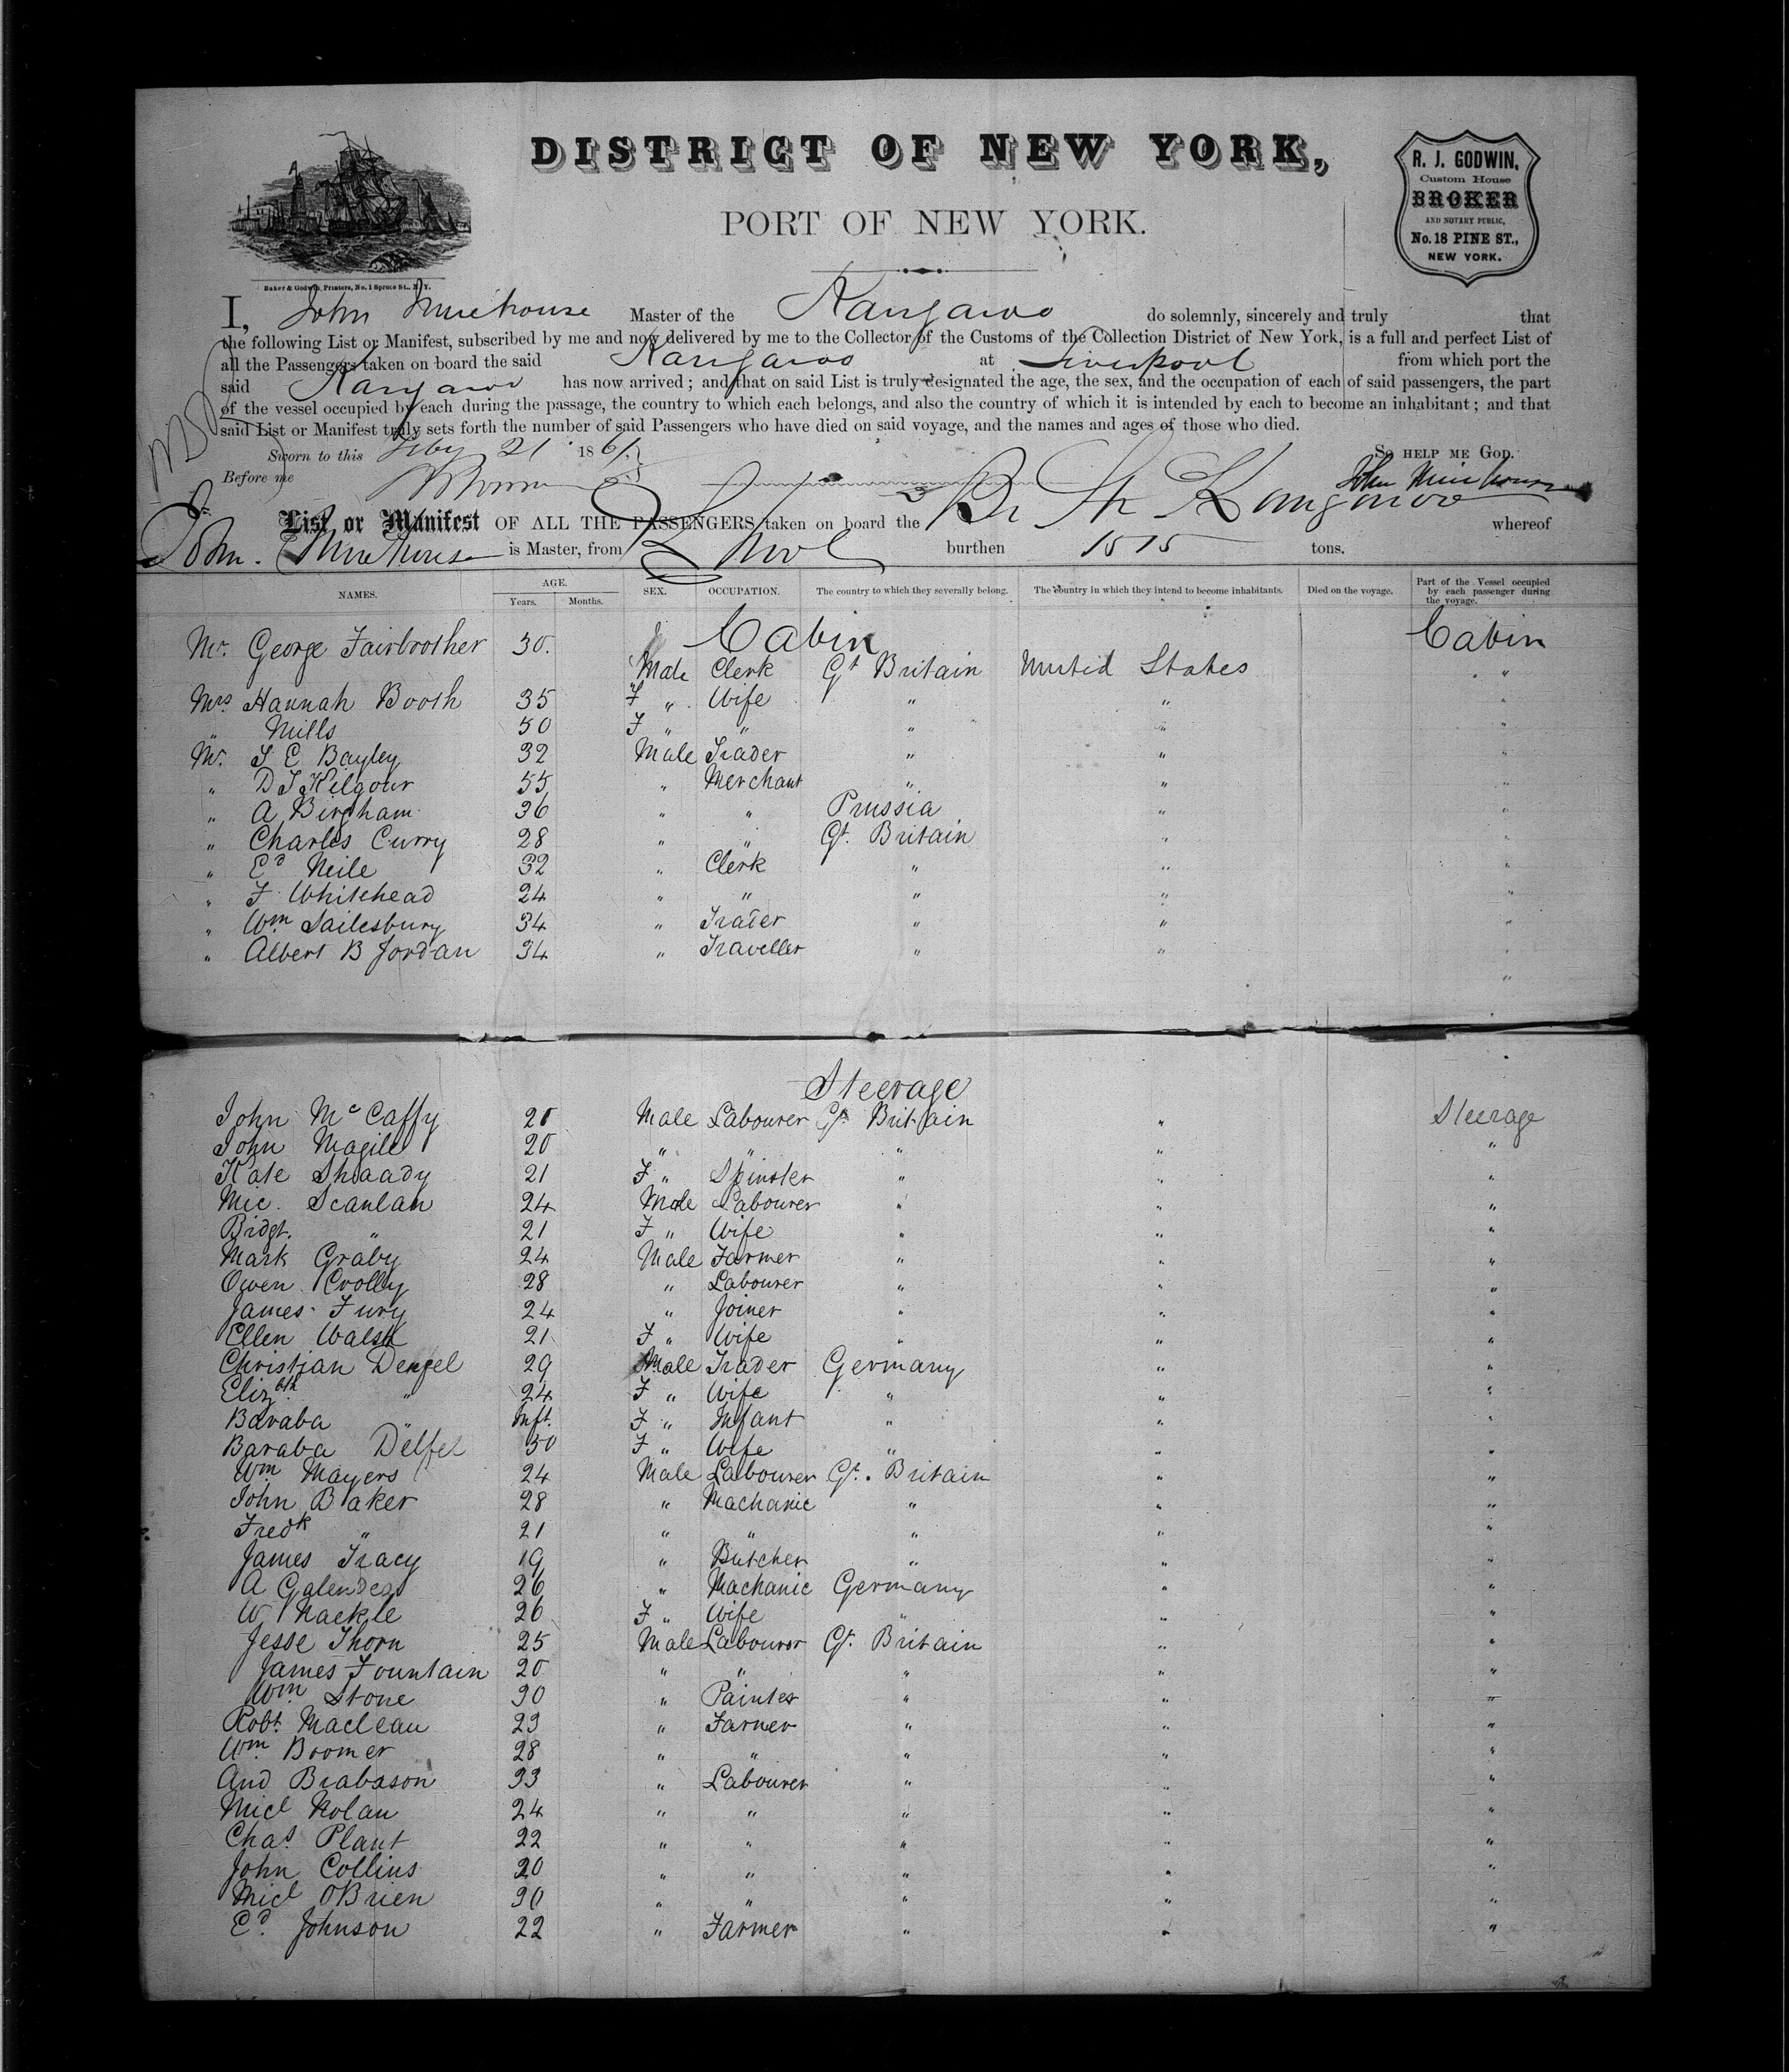 DISTRICT OF NEW YORK,
PORT OF NEW YORK.
R. J. GODWIN,
Custom House
BROKER
AND NOTARY PUBLIC,
No. 18 PINE ST.,
NEW YORK.
Baker & Godwin, Printers, No. 1 Spruce St., N. Y.
I, John Muirhouse Master of the Kangaroo do solemnly, sincerely and truly that
the following List or Manifest, subscribed by me and now delivered by me to the Collector of the Customs of the Collection District of New York, is a full and perfect List of
all the Passengers taken on board the said Kangaroo at Liverpool from which port the
said Kangaroo has now arrived; and that on said List is truly designated the age, the sex, and the occupation of each of said passengers, the part
of the vessel occupied by each during the passage, the country to which each belongs, and also the country of which it is intended by each to become an inhabitant; and that
said List or Manifest truly sets forth the number of said Passengers who have died on said voyage, and the names and ages of those who died.
Sworn to this Feby 21 1861. So HELP ME GOD.
Before me John Muirhouse
List or Manifest OF ALL THE PASSENGERS taken on board the Br Str Kangaroo whereof
John Muirhouse is Master, from L'pool burthen 1515 tons.
NAMES. AGE. Years. Months. SEX. OCCUPATION. The country to which they severally belong. The country in which they intend to become inhabitants. Died on the voyage. Part of the Vessel occupied by each passenger during the voyage.
Cabin Cabin
Mr. George Fairbrother 30. Male Clerk Gt Britain United States "
Mrs Hannah Booth 35 F " Wife " " "
" Mills 50 F " " " " "
Mr. S E Bayley 32 Male Trader " " "
" D S Kilgour 55 " Merchant " " "
" A Bingham 36 " " Prussia " "
" Charles Curry 28 " " Gt. Britain " "
" Ed Neile 32 " Clerk " " "
" F Whitehead 24 " " " " "
" Wm Sailesbury 34 " Trader " " "
" Albert B Jordan 34 " Traveller " " "
Steerage
John McCaffy 20 Male Labourer Gt Britain " Steerage
John Magill 20 " " " " "
Kate Shaady 21 F " Spinster " " "
Mic. Scanlan 24 Male Labourer " " "
Bridgt. " 21 F " Wife " " "
Mark Graby 24 Male Farmer " " "
Owen Crolly 28 " Labourer " " "
James Fury 24 " Joiner " " "
Ellen Walsh 21 F " Wife " " "
Christian Denfel 29 Male Trader Germany " "
Elizbth " 24 F " Wife " " "
Baraba " Inft. F " Infant " " "
Baraba Delfel 50 F " Wife " " "
Wm Mayers 24 Male Labourer Gt. Britain " "
John Baker 28 " Machanic " " "
Fredk " 21 " " " " "
James Tracy 19 " Butcher " " "
A Galendez 26 " Machanic Germany " "
W Nackle 26 F " Wife " " "
Jesse Thorn 25 Male Labourer Gt. Britain " "
James Fountain 20 " " " " "
Wm Stone 30 " Painter " " "
Robt. Maclean 23 " Farner " " "
Wm. Boomer 28 " " " " "
And Brabason 33 " Labourer " " "
Micl Nolan 24 " " " " "
Chas. Plant 22 " " " " "
John Collins 20 " " " " "
Micl OBrien 30 " " " " "
Ed. Johnson 22 " Farmer " " "